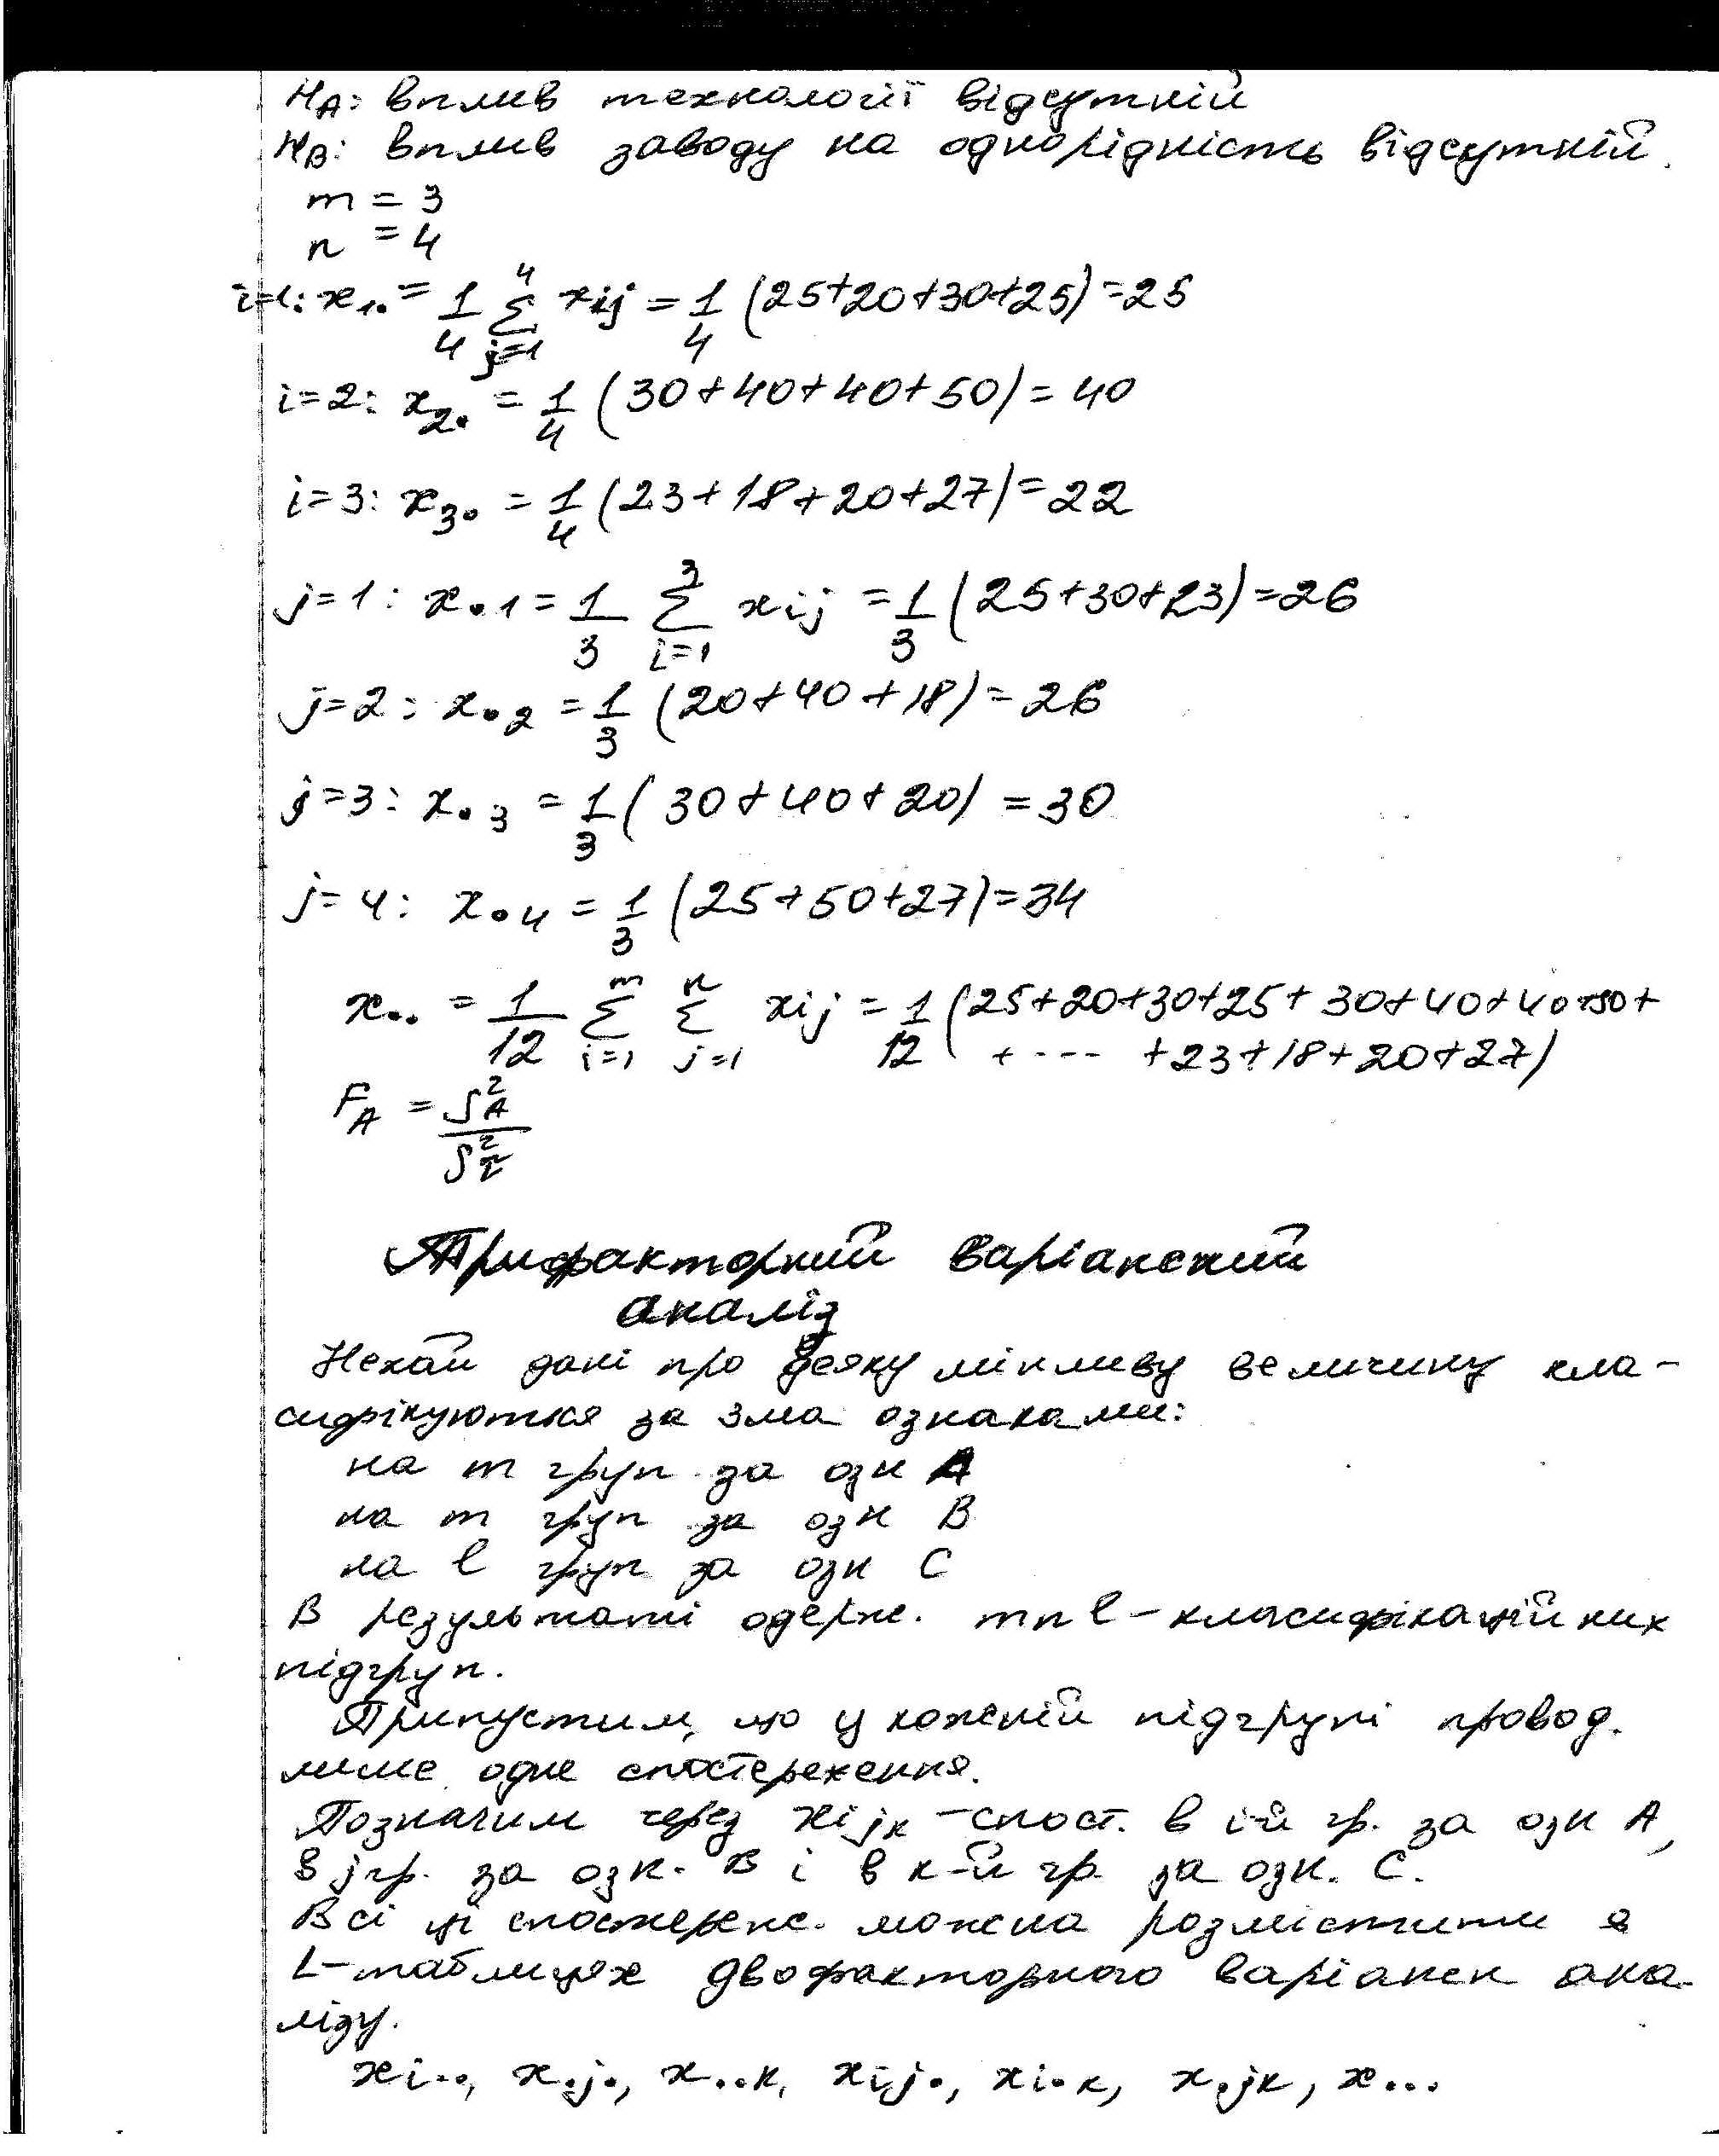 H_A: вплив технології відсутній
H_B: вплив заводу на однорідність відсутній.
m = 3
n = 4
i=1: x₁. = 1/4 Σ_{j=1}^{4} xij = 1/4 (25+20+30+25) = 25
i=2: x₂. = 1/4 (30+40+40+50) = 40
i=3: x₃. = 1/4 (23+18+20+27) = 22
j=1: x.₁ = 1/3 Σ_{i=1}^{3} xij = 1/3 (25+30+23) = 26
j=2: x.₂ = 1/3 (20+40+18) = 26
j=3: x.₃ = 1/3 (30+40+20) = 30
j=4: x.₄ = 1/3 (25+50+27) = 34
x.. = 1/12 Σ_{i=1}^{m} Σ_{j=1}^{n} xij = 1/12 (25+20+30+25+30+40+40+50+
+ ---- +23+18+20+27)
F_A = S²_A / S²_Z
Трифакторний варіансний
аналіз
Нехай дані про деяку мінливу величину кла-
сифікуються за 3ма ознаками:
на m груп за озн A
на m груп за озн B
на l груп за озн C
В результаті одерж. mnl - класифікаційних
підгруп.
Припустим, що у кожній підгрупі провод.
лише одне спостереження.
Позначим через xijk - спост. в i-й гр. за озн A,
в j гр. за озн. B і в к-й гр. за озн. C.
Всі ці спостереж. можна розмістити в
L-таблицях двофакторного варіансн ана-
лізу.
xi.., x.j., x..к, xij., xi.к, x.jк, x...